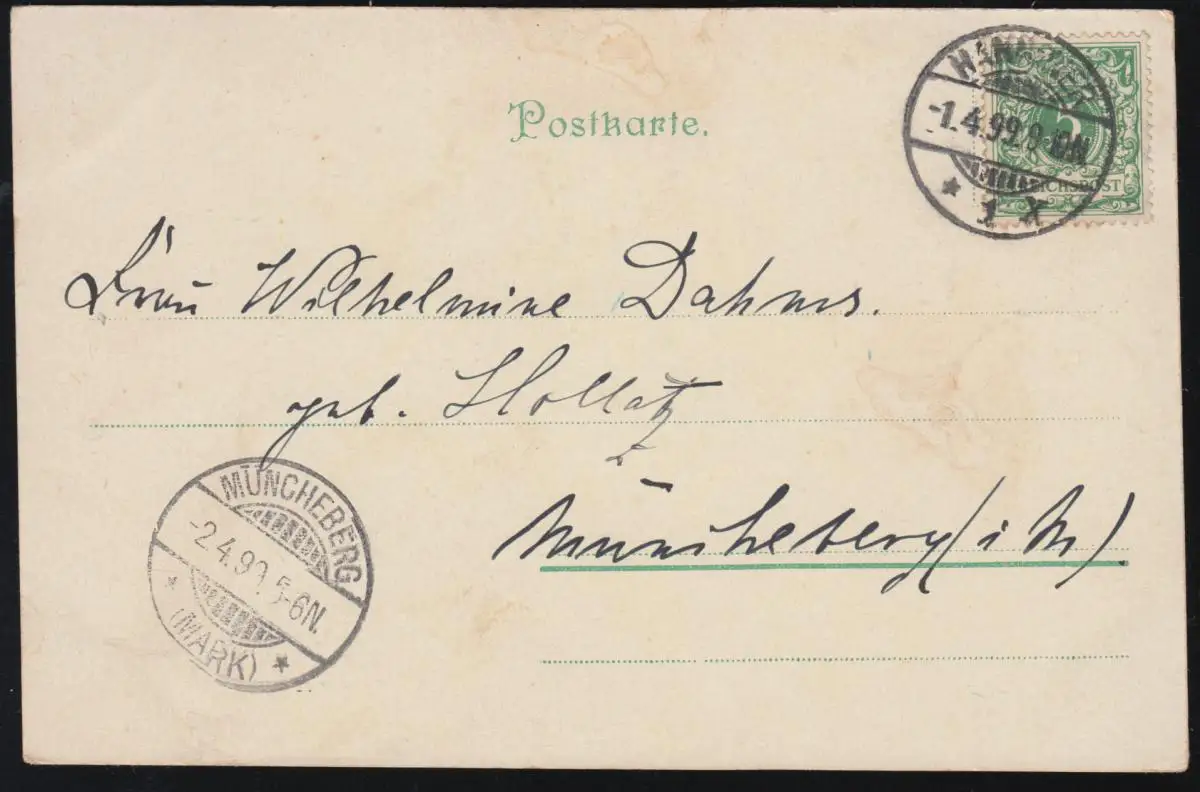 Postkarte.
HANNOVER
-1.4.99.9-10N.
* 1 *
5
REICHSPOST
Frau Wilhelmine Dahms.
geb. Hollatz
Müncheberg (i M).
MÜNCHEBERG
-2.4.99.5-6N.
* (MARK) *